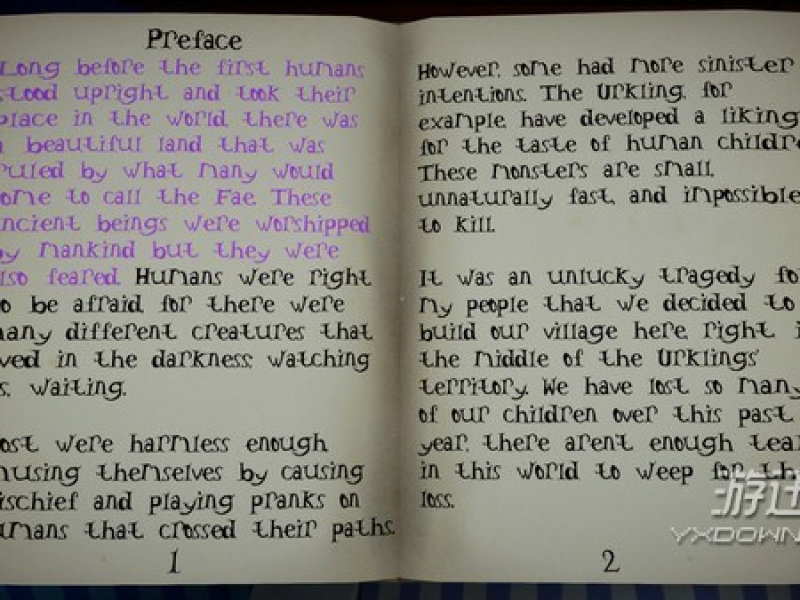 Preface
Long before the first humans
stood upright and took their
place in the world, there was
a beautiful land that was
ruled by what many would
come to call the Fae. These
ancient beings were worshipped
by mankind but they were
also feared. Humans were right
to be afraid, for there were
many different creatures that
lived in the darkness; watching
us, waiting.
Most were harmless enough
amusing themselves by causing
mischief and playing pranks on
humans that crossed their paths.
1
However, some had more sinister
intentions. The Urkling, for
example, have developed a liking
for the taste of human children.
These monsters are small,
unnaturally fast, and impossible
to kill.
It was an unlucky tragedy for
my people that we decided to
build our village here, right in
the middle of the Urklings'
territory. We have lost so many
of our children over this past
year, there aren't enough tears
in this world to weep for the
loss.
2
游迅
YXDOWN